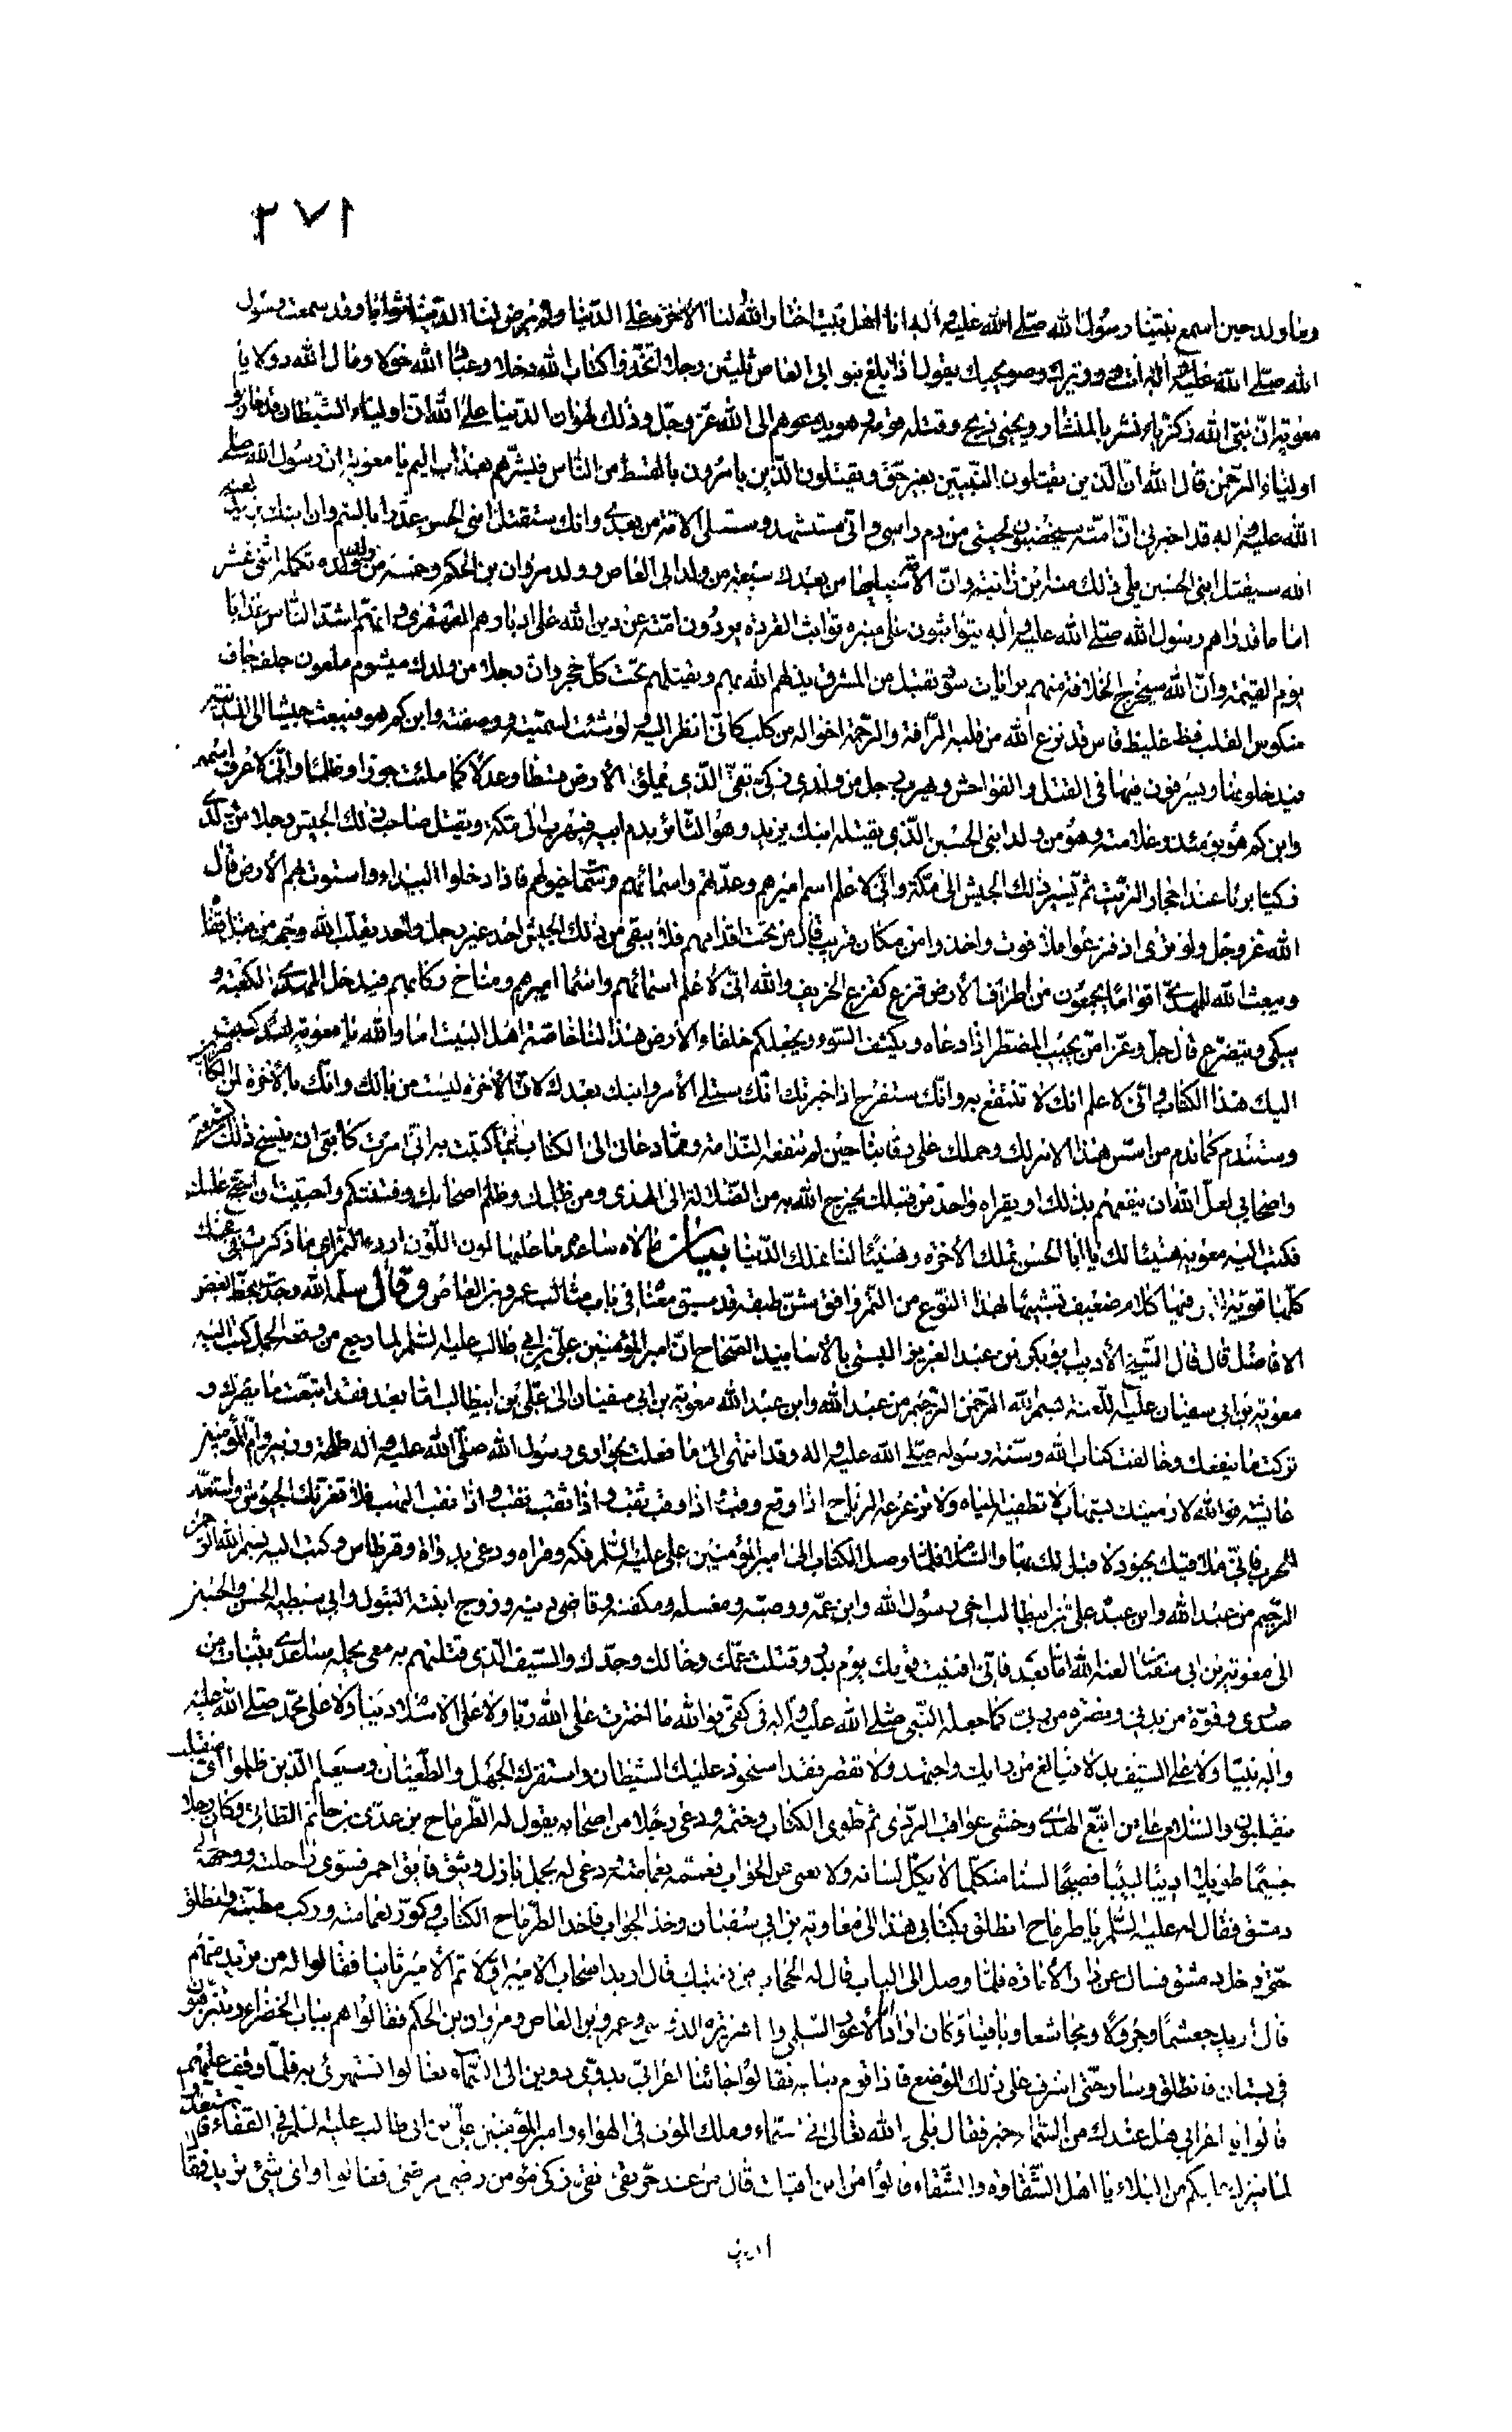 ٢٧١
وما ولد حين اسمع نبينا رسول الله صلى الله عليه واله انا اهل بيت اختار الله لنا الاخرة على الدنيا ولم يرض لنا الدنيا ثوابا وقد سمعت رسول
الله صلى الله عليه واله انت ووزيرك وصويحبك يقول اذا بلغ بنو ابى العاص ثلثين رجلا اتخذوا كتاب الله دخلا وعباد الله خولا ومال الله دولا يا
معوية ان نبى الله زكريا نشر بالمنشار ويحيى ذبح وقتله قومه وهو يدعوهم الى الله عز وجل وذلك لهوان الدنيا على الله ان اولياء الشيطان قد حاربوا
اولياء الرحمن قال الله ان الذين يقتلون النبيين بغير حق ويقتلون الذين يامرون بالقسط من الناس فبشرهم بعذاب اليم يا معوية ان رسول الله صلى
الله عليه واله قد اخبرنى ان امته سيخضبون لحيتى من دم راسى وانى مستشهد وستلى الامة من بعدى وانك ستقتل ابنى الحسن غدرا بالسم وان ابنك يزيد لعنه
الله سيقتل ابنى الحسين يلى ذلك منه ابن زانية وان الامة سيليها من بعدك سبعة من ولد ابى العاص وولد مروان بن الحكم وخمسة من ولده تكملة اثنى عشر
اماما قد راهم رسول الله صلى الله عليه واله يتواثبون على منبره تواثب القردة يردون امته عن دين الله على ادبارهم القهقرى وانهم اشد الناس عذابا
يوم القيمة وان الله سيخرج الخلافة منهم برايات سود تقبل من المشرق يذلهم الله بهم ويقتلهم تحت كل حجر وان رجلا من ولدك ميشوم ملعون جلف جاف
منكوس القلب فظ غليظ قاس قد نزع الله من قلبه الرافة والرحمة اخواله من كلب كانى انظر اليه ولو شئت لسميته ووصفته وابن كم هو فيبعث جيشا الى المدينة
فيدخلونها ويسرفون فيها فى القتل والفواحش ويهرب رجل من ولدى زكى تقى الذى يملؤ الارض قسطا وعدلا كما ملئت جورا وظلما وانى لاعرف اسمه
وابن كم هو يومئذ وعلامته وهو من ولد ابنى الحسين الذى يقتله ابنك يزيد وهو الثائر بدم ابيه فيهرب الى مكة ويقتل صاحب ذلك الجيش رجلا من ولدى
زكيا بريا عند احجار الزيت ثم يسير ذلك الجيش الى مكة وانى لاعلم اسم اميرهم وعدتهم واسمائهم وسمات خيولهم فاذا دخلوا البيداء واستوت بهم الارض قال
الله عز وجل ولو ترى اذ فزعوا فلا فوت واخذوا من مكان قريب قال من تحت اقدامهم فلا يبقى من ذلك الجيش احد غير رجل واحد يقلب الله وجهه من قبل قفاه
ويبعث الله للمهدى اقواما يجمعون من اطراف الارض قزع كقزع الخريف والله انى لاعلم اسمائهم واسم اميرهم ومناخ ركابهم فيدخل المهدى الكعبة و
يبكى ويتضرع قال جل وعز امن يجيب المضطر اذا دعاه ويكشف السوء ويجعلكم خلفاء الارض هذا لنا خاصة اهل البيت اما والله يا معوية لقد كتبت
اليك هذا الكتاب وانى لاعلم انك لا تنتفع به وانك ستفرح اذا اخبرتك انك ستلى الامر وابنك بعدك لان الاخرة ليست من بالك وانك بالاخرة لمن الكافرين
وستندم كما ندم من اسس هذا الامر لك وحملك على رقابنا حين لم تنفعه الندامة ومما دعانى الى الكتاب بما كتبت به انى امرت كاتبى ان ينسخ ذلك لشيعتى
واصحابى لعل الله ان ينفعهم بذلك او يقراه واحد من قبلك فيخرج الله به من الضلالة الى الهدى ومن ظلمك وظلم اصحابك وفتنتكم واحببت ان احتج عليك
فكتب اليه معوية هنيئا لك يا ابا الحسن تملك الاخرة وهنيئا لنا تملك الدنيا بيان
الافاضل قال قال الشيخ الاديب ابو بكر بن عبد العزيز البستى بالاسانيد الصحاح ان امير المؤمنين على بن ابى طالب عليه السلم لما رجع من وقعة الجمل كتب اليه
معوية بن ابى سفيان عليه اللعنة بسم الله الرحمن الرحيم من عبد الله وابن عبد الله معوية بن ابى سفيان الى على بن ابيطالب اما بعد فقد اتبعت ما يضرك و
تركت ما ينفعك وخالفت كتاب الله وسنة رسوله صلى الله عليه واله وقد انتهى الى ما فعلت بحوارى رسول الله صلى الله عليه واله طلحة وزبير وام المؤمنين
عائشة فوالله لارمينك بشهاب لا تطفيه المياه ولا تزعزعه الرياح اذا وقع وقب واذا وقب ثقب واذا ثقب نقب واذا نقب التهب فلا تغرنك الجيوش واستعد
للحرب فانى ملاقيك بجنود لا قبل لك بها والسلام فلما وصل الكتاب الى امير المؤمنين على عليه السلم فكه وقراه ودعى بدواة وقرطاس وكتب اليه بسم الله الرحمن
الرحيم من عبد الله وابن عبده على بن ابيطالب اخى رسول الله وابن عمه ووصيه ومغسله ومكفنه وقاضى دينه وزوج ابنته البتول وابى سبطيه الحسن والحسين
الى معوية بن ابى سفيان لعنه الله اما بعد فانى افنيت قومك يوم بدر وقتلت عمك وخالك وجدك والسيف الذى قتلتهم به معى يحمله ساعدى بثبات من
صدرى وقوة من بدنى ونصرة من ربى كما جعله النبى صلى الله عليه واله فى كفى فوالله ما اخترت على الله ربا ولا على الاسلام دينا ولا على محمد صلى الله عليه
واله نبيا ولا على السيف بدلا فبالغ من رايك واجتهد ولا تقصر فقد استحوذ عليك الشيطان واستفزك الجهل والطغيان وسيعلم الذين ظلموا اى منقلب
ينقلبون والسلام على من اتبع الهدى وخشى عواقب الردى ثم طوى الكتاب وختمه ودعى رجلا من اصحابه يقول له الطرماح بن عدى بن حاتم الطائى وكان رجلا
جسيما طويلا اديبا لبيبا فصيحا لسنا متكلما لا يكل لسانه ولا يعى عن الجواب فعممه بعمامته ودعى له بجمل بازل وثيق فائق احمر فسوى راحلته ووجهه الى
دمشق فقال له عليه السلم يا طرماح انطلق بكتابى هذا الى معاوية بن ابى سفيان وخذ الجواب فاخذ الطرماح الكتاب وكور بعمامته وركب مطيته وانطلق
حتى دخل دمشق فسال عن دار الامارة فلما وصل الى الباب قال له الحجاب من بغيتك قال اريد اصحاب الامير اولا ثم الامير ثانيا فقالوا له من تريد منهم
قال اريد جعشما وجرولا ومجاشعا وباقيا وكان اراد ابا الاعور السلمى وابا هريرة الدوسى وعمرو بن العاص ومروان بن الحكم فقالوا هم بباب الخضراء يتنزهون
فى بستان فانطلق وسار حتى اشرف على ذلك الموضع فاذا قوم ببابه فقالوا جائنا اعرابى بدوى دوين الى السماء تعالوا نستهزئ به فلما وقف عليهم
قالوا يا اعرابى هل عندك من السماء خبر فقال بلى الله تعالى فى السماء وملك الموت فى الهواء وامير المؤمنين على بن ابى طالب عليه السلم فى القفاء فاستعدوا
لما ينزل بكم من البلاء يا اهل الشقاوة والشقاء قالوا من اين اقبلت قال من عند حر تقى نقى زكى مؤمن رضى مرضى فقالوا واى شئ تريد فقا
اريد